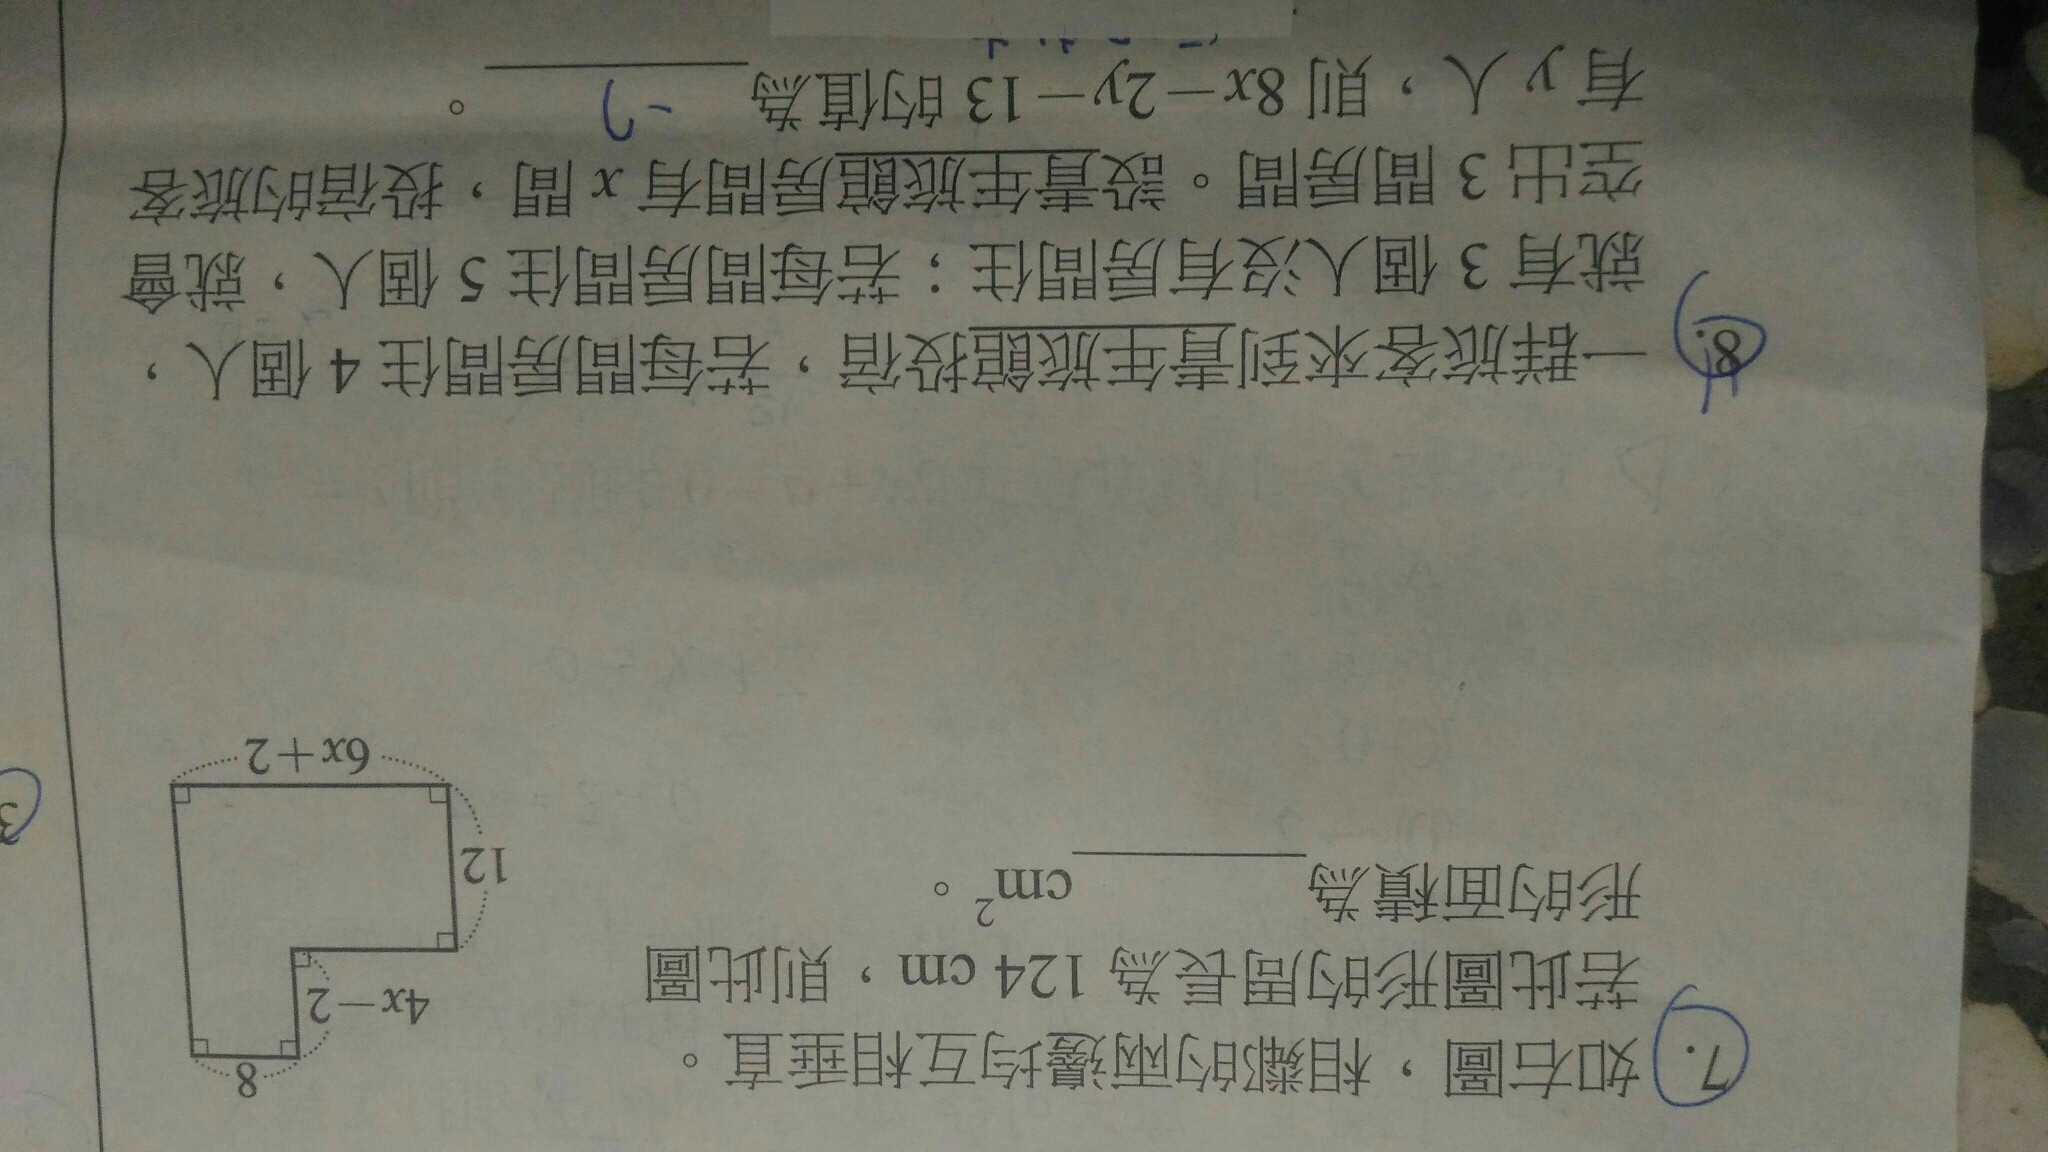 7. 如右圖，相鄰的兩邊均互相垂直。
若此圖形的周長為 124 cm，則此圖
形的面積為 cm²。
8
4x−2
12
6x+2
8. 一群旅客來到青年旅館投宿，若每間房間住 4 個人，
就有 3 個人沒有房間住；若每間房間住 5 個人，就會
空出 3 間房間。設青年旅館房間有 x 間，投宿的旅客
有 y 人，則 8x−2y−13 的值為 。
3